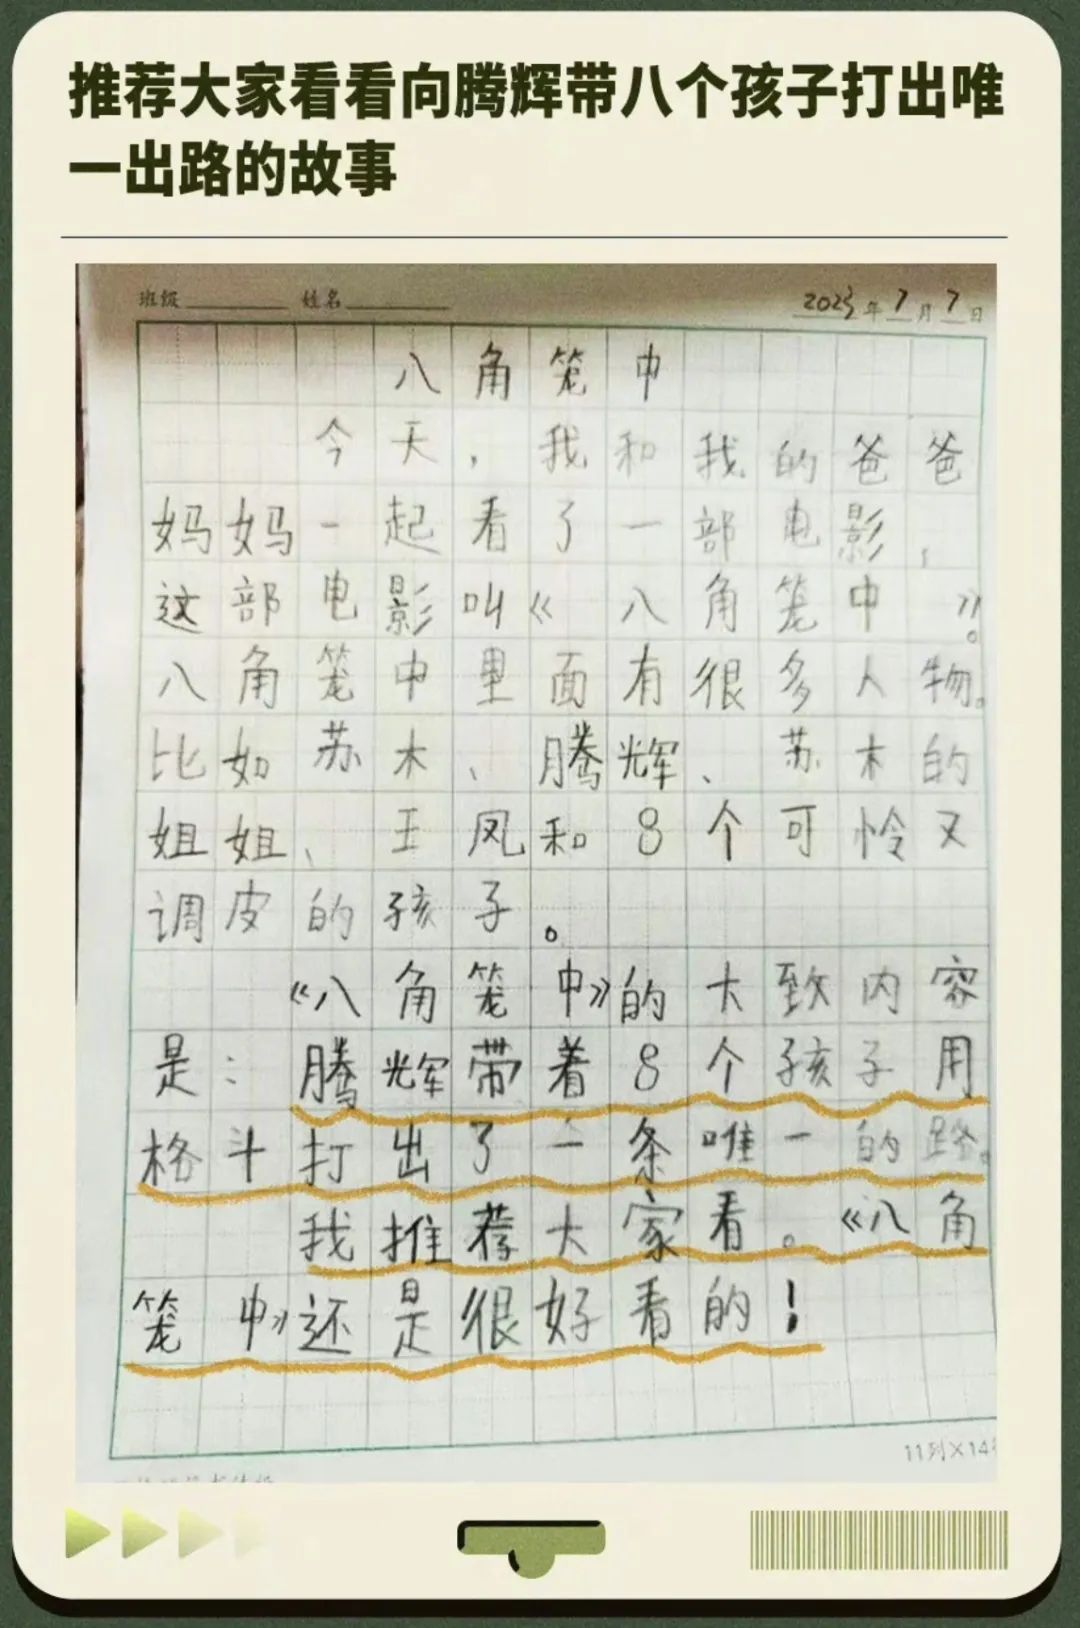 推荐大家看看向腾辉带八个孩子打出唯
一出路的故事
班级 姓名 2023年7月7日
八角笼中
今天，我和我的爸爸
妈妈一起看了一部电影，
这部电影叫《八角笼中》。
八角笼中里面有很多人物。
比如苏木、腾辉、苏木的
姐姐、王凤和8个可怜又
调皮的孩子。
《八角笼中》的大致内容
是：腾辉带着8个孩子用
格斗打出了一条唯一的路。
我推荐大家看。《八角
笼中》还是很好看的！
11列×14